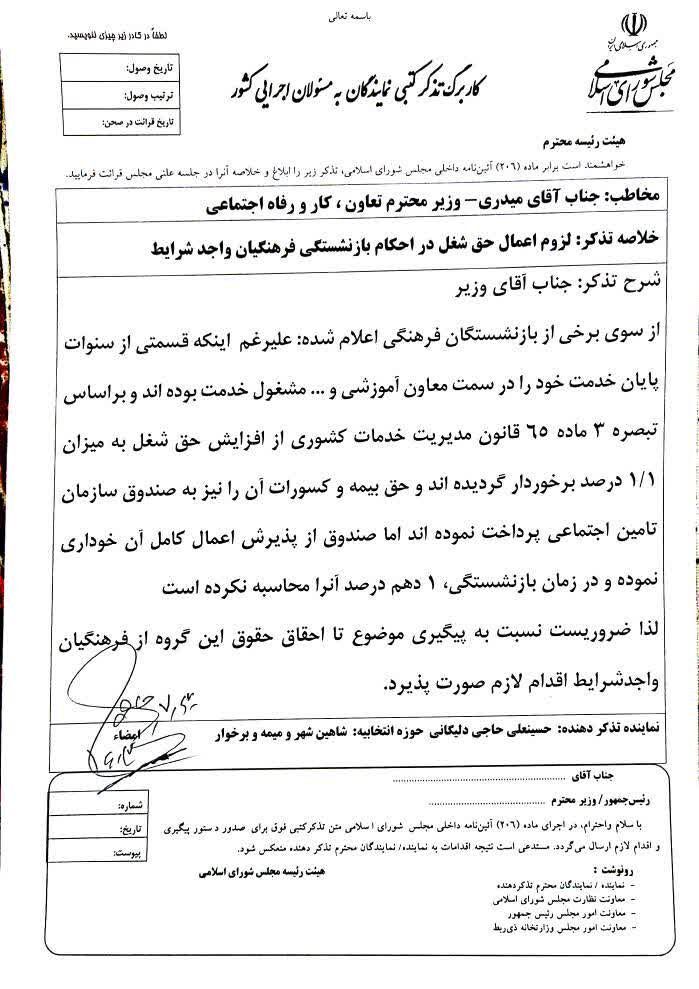 باسمه تعالی
جمهوری اسلامی ایران
مجلس شورای اسلامی
کاربرگ تذکر کتبی نمایندگان به مسئولان اجرایی کشور
لطفاً در کادر زیر چیزی ننویسید.
تاریخ وصول:
ترتیب وصول:
تاریخ قرائت در صحن:
هیئت رئیسه محترم
خواهشمند است برابر ماده (۲۰۶) آئین‌نامه داخلی مجلس شورای اسلامی، تذکر زیر را ابلاغ و خلاصه آنرا در جلسه علنی مجلس قرائت فرمایید.
مخاطب: جناب آقای میدری– وزیر محترم تعاون ، کار و رفاه اجتماعی
خلاصه تذکر: لزوم اعمال حق شغل در احکام بازنشستگی فرهنگیان واجد شرایط
شرح تذکر: جناب آقای وزیر
از سوی برخی از بازنشستگان فرهنگی اعلام شده: علیرغم اینکه قسمتی از سنوات
پایان خدمت خود را در سمت معاون آموزشی و ... مشغول خدمت بوده اند و براساس
تبصره ۳ ماده ٦٥ قانون مدیریت خدمات کشوری از افزایش حق شغل به میزان
۱/۱ درصد برخوردار گردیده اند و حق بیمه و کسورات آن را نیز به صندوق سازمان
تامین اجتماعی پرداخت نموده اند اما صندوق از پذیرش اعمال کامل آن خوداری
نموده و در زمان بازنشستگی، ۱ دهم درصد آنرا محاسبه نکرده است
لذا ضروریست نسبت به پیگیری موضوع تا احقاق حقوق این گروه از فرهنگیان
واجدشرایط اقدام لازم صورت پذیرد.
نماینده تذکر دهنده: حسینعلی حاجی دلیگانی حوزه انتخابیه: شاهین شهر و میمه و برخوار
امضاء
جناب آقای ........................................
رئیس‌جمهور/ وزیر محترم ........................................
با سلام واحترام، در اجرای ماده (۲۰۶) آئین‌نامه داخلی مجلس شورای اسلامی متن تذکرکتبی فوق برای صدور دستور پیگیری
و اقدام لازم ارسال می‌گردد. مستدعی است نتیجه اقدامات به نماینده/ نمایندگان محترم تذکر دهنده منعکس شود.
شماره:
تاریخ:
پیوست:
هیئت رئیسه مجلس شورای اسلامی
رونوشت :
- نماینده / نمایندگان محترم تذکردهنده
- معاونت نظارت مجلس شورای اسلامی
- معاونت امور مجلس رئیس جمهور
- معاونت امور مجلس وزارتخانه ذی‌ربط